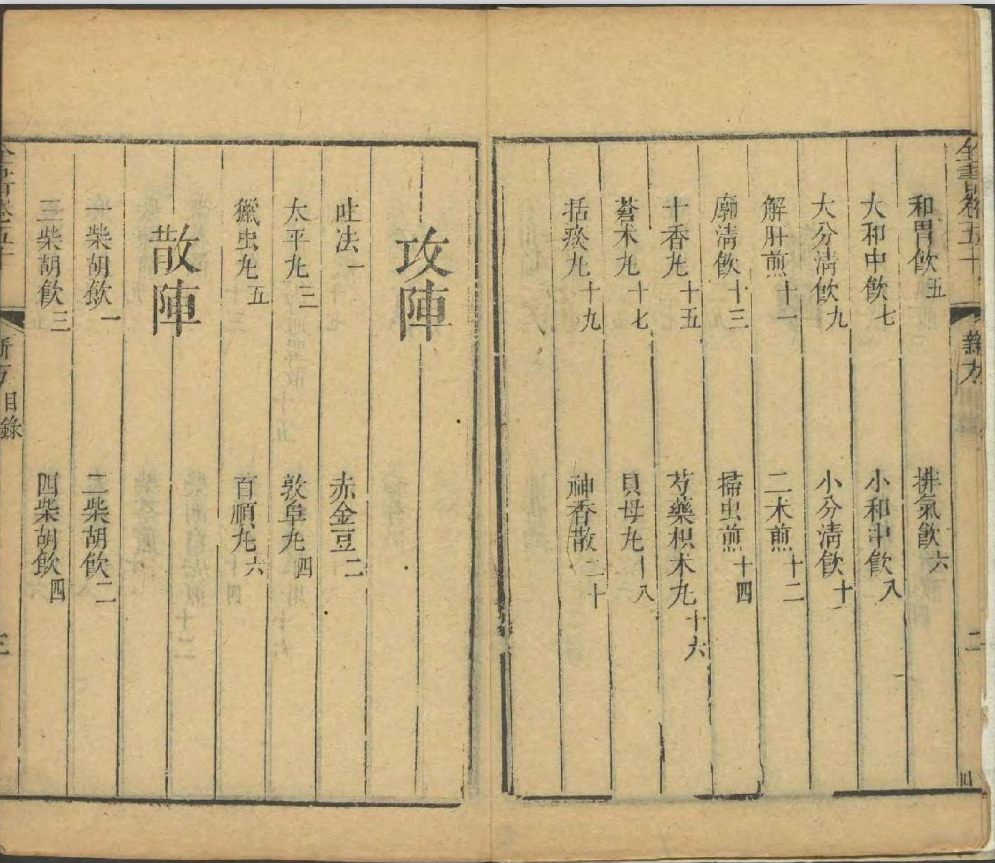 和胃飲五　排氣飲六
大和中飲七　小和中飲八
大分清飲九　小分清飲十
解肝煎十一　二术煎十二
廓清飲十三　掃虫煎十四
十香丸十五　芍藥枳术丸十六
蒼术丸十七　貝母丸十八
括痰丸十九　神香散二十
攻陣
吐法一　赤金豆二
太平丸三　敦阜丸四
獵虫丸五　百順丸六
散陣
一柴胡飲一　二柴胡飲二
三柴胡飲三　四柴胡飲四
目錄